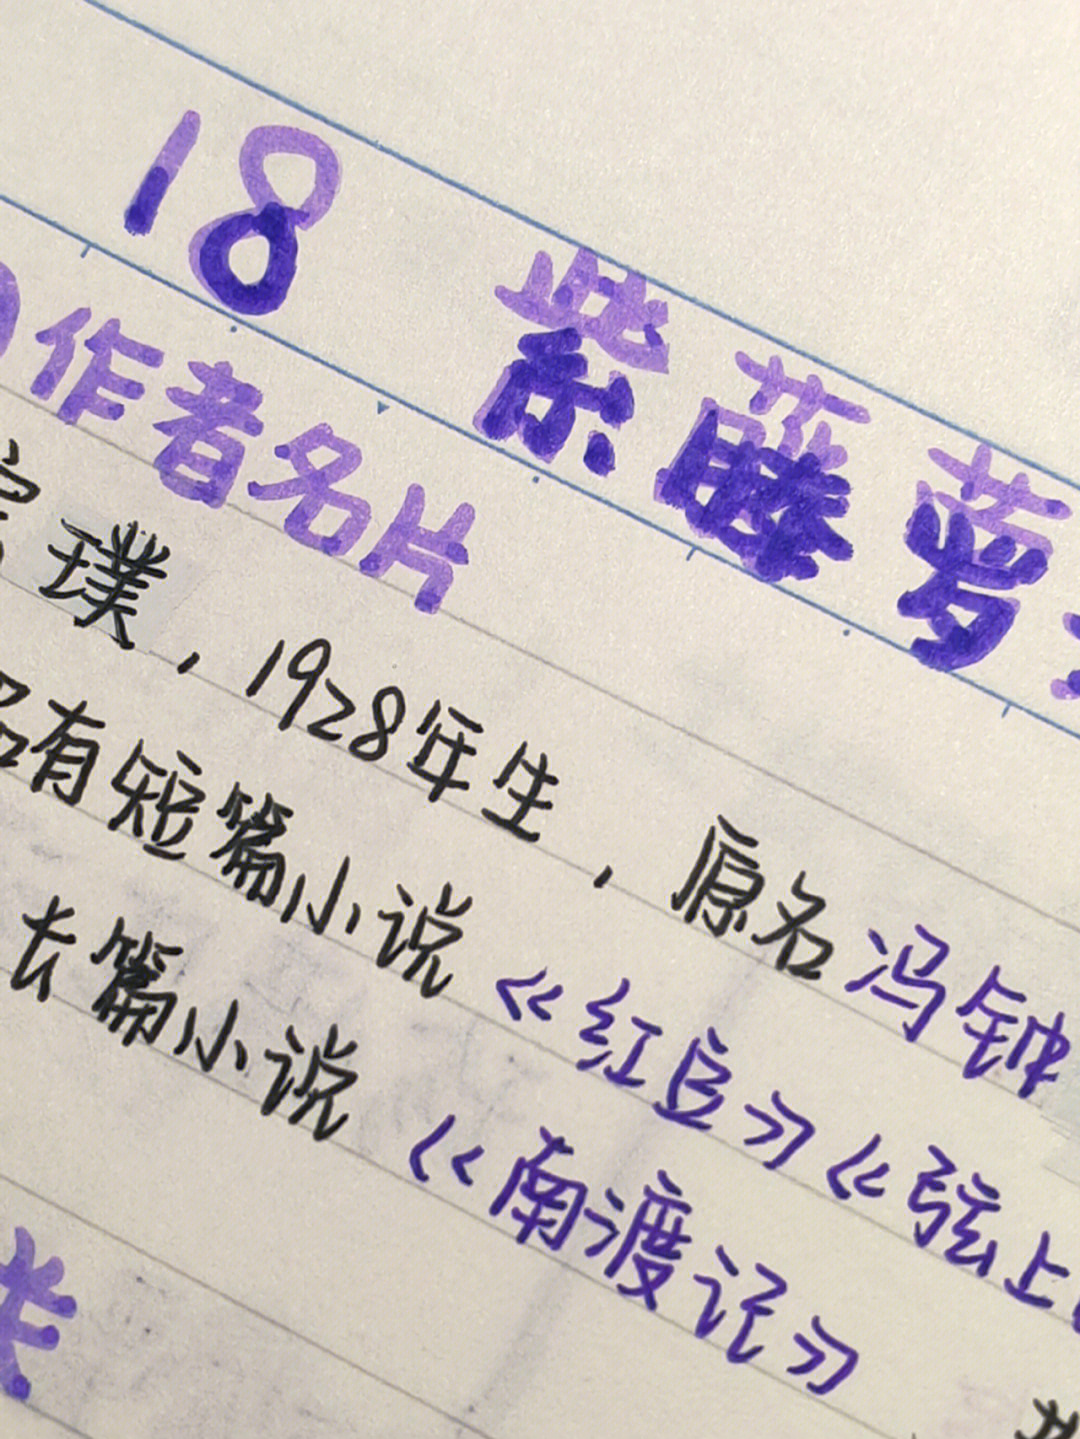 18 紫藤萝
作者名片
璞，1928年生，原名冯钟
名有短篇小说《红豆》《弦上
长篇小说《南渡记》